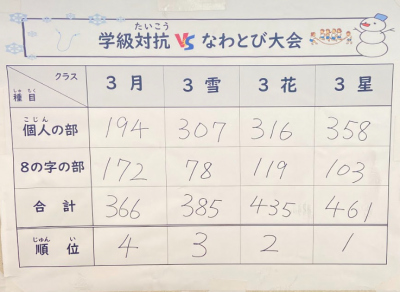 たいこう
学級対抗 VS なわとび大会
クラス
しゅもく
種目
3月 3雪 3花 3星
こじん
個人の部 194 307 316 358
8の字の部 172 78 119 103
合計 366 385 435 461
じゅんい
順位 4 3 2 1